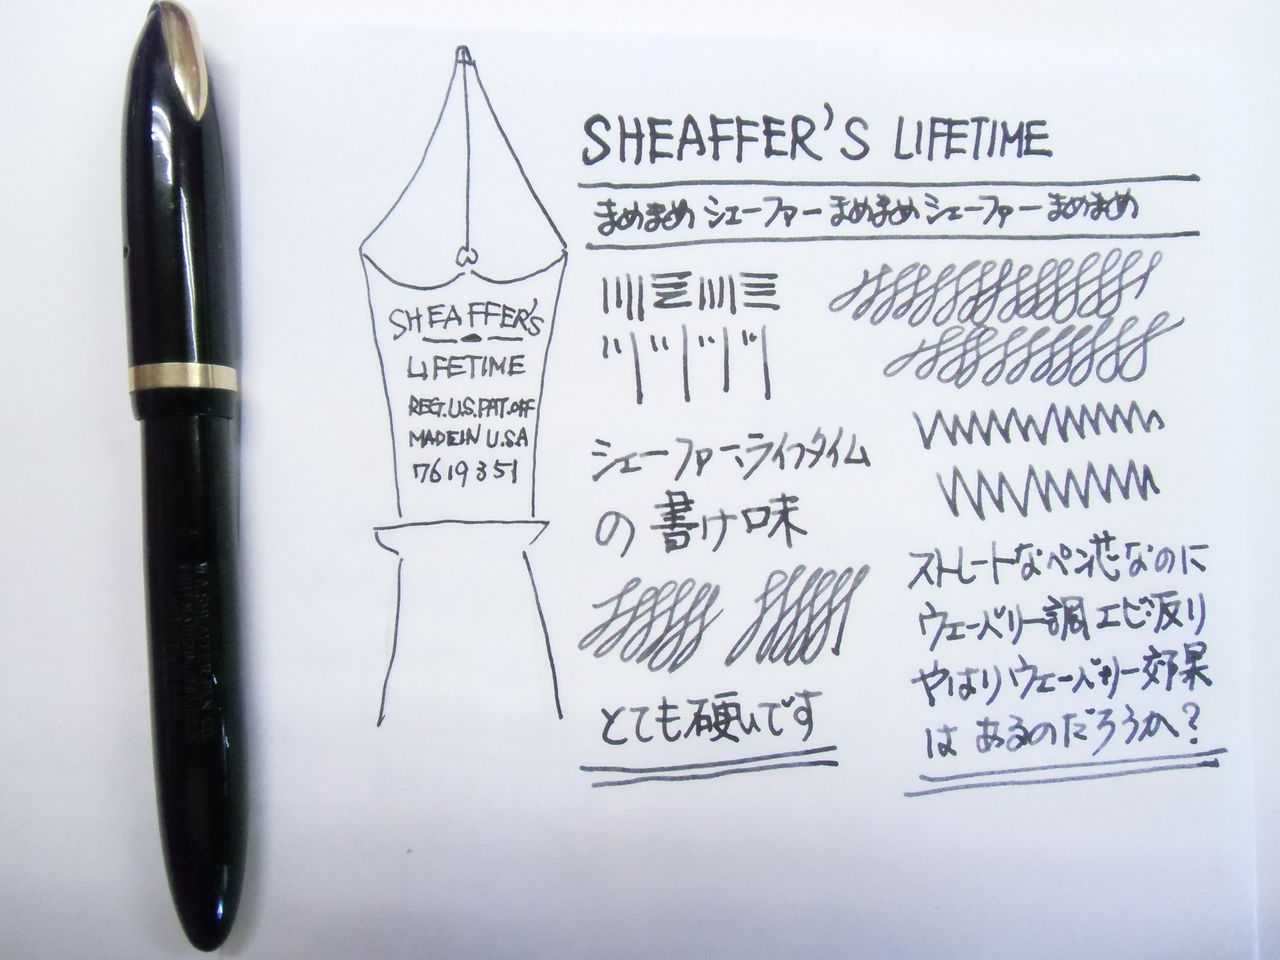 SHEAFFER'S LIFETIME
まめまめ シェーファー まめまめ シェーファー まめまめ
SHEAFFER'S
LIFETIME
REG.U.S.PAT.OFF
MADE IN U.S.A
7619351
シェーファー、ライフタイム
の書け味
とても硬いです
ストレートなペン芯なのに
ウェーバリー調エビ返り
やはりウェーバリー効果
は あるのだろうか?